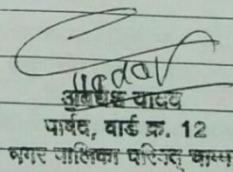 yadav
यादव
पार्षद, वार्ड क्र. 12
नगर पालिका परिषद्